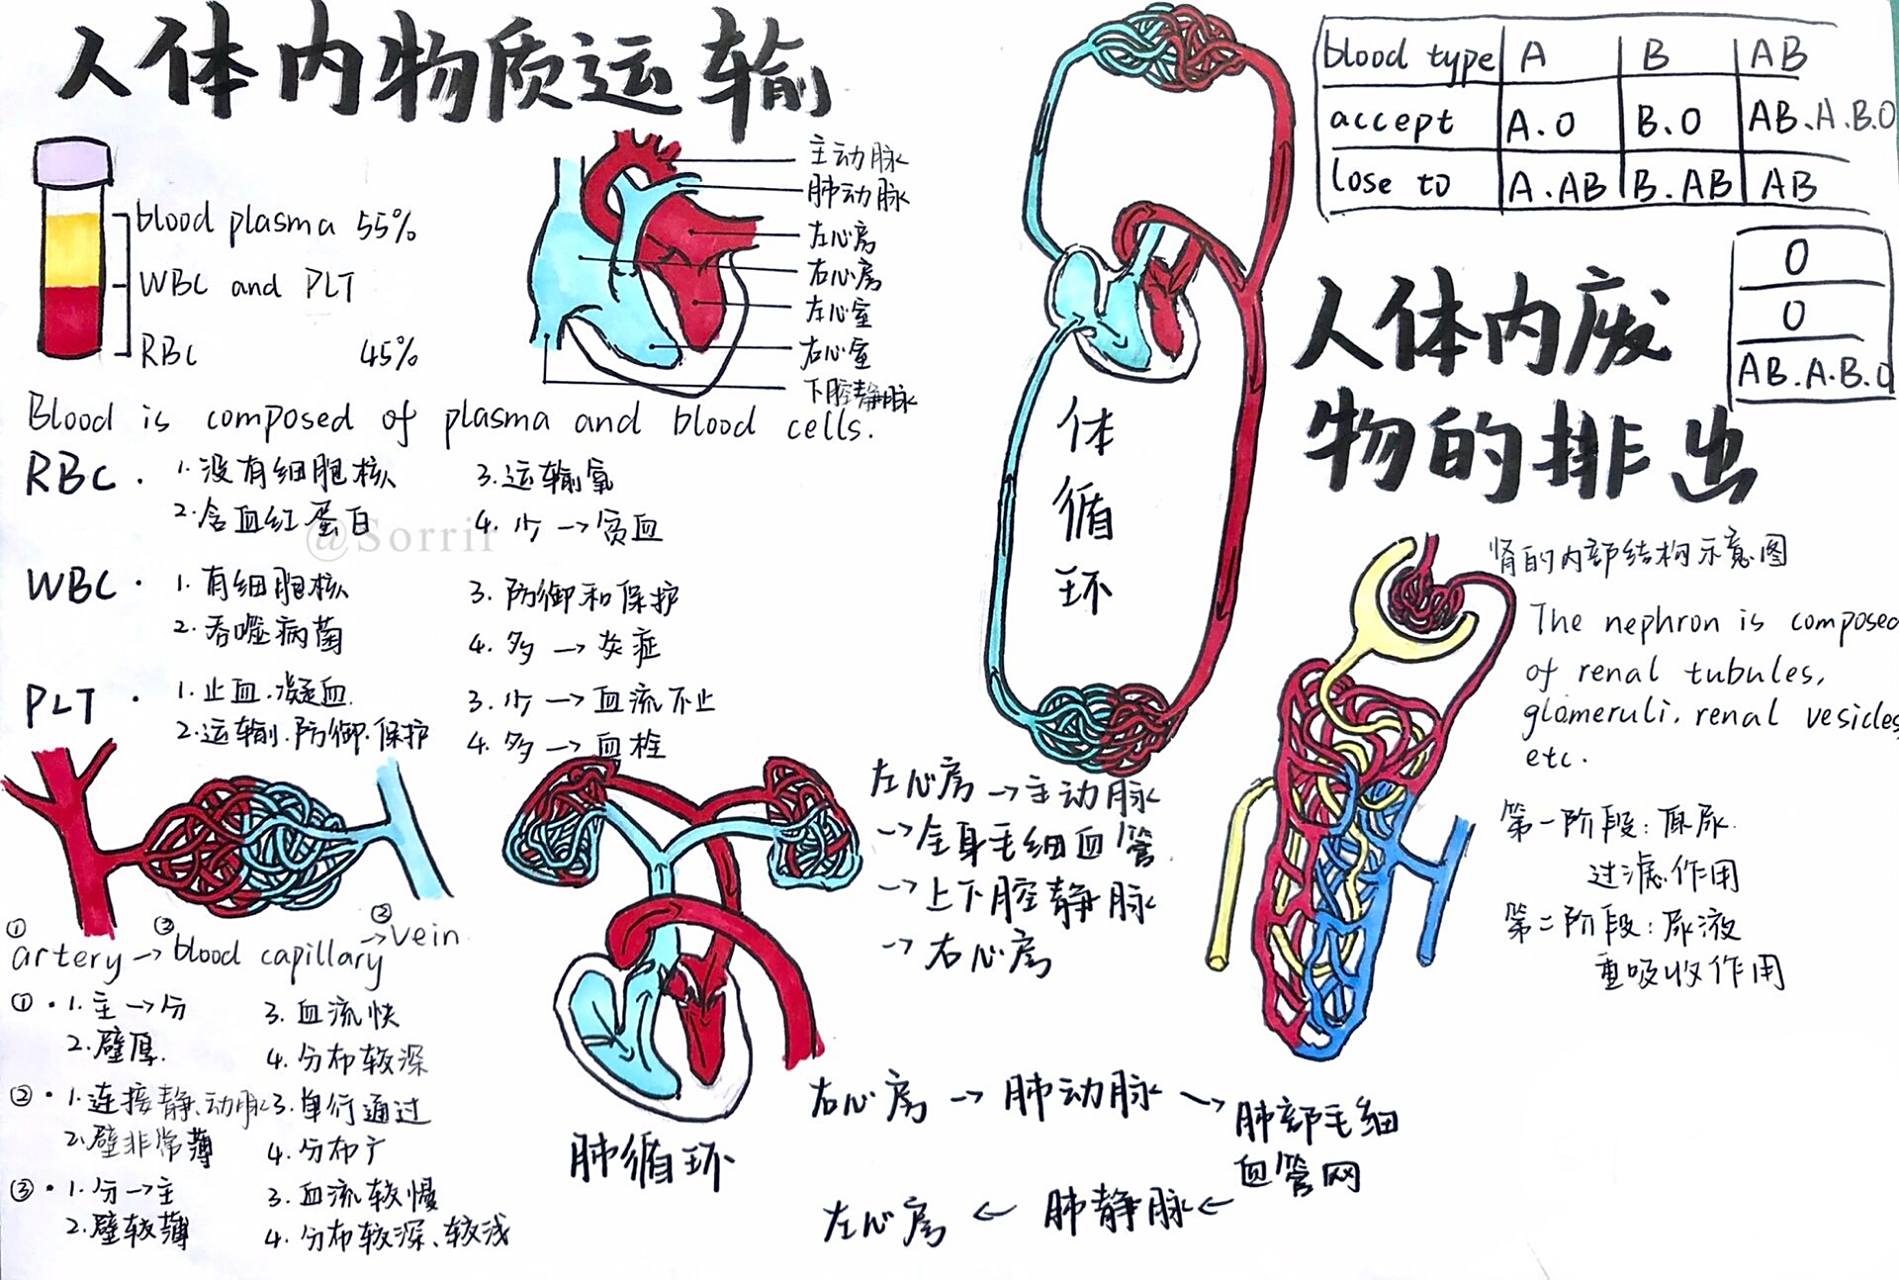 人体内物质运输
blood plasma 55%
WBC and PLT
RBC 45%
主动脉
肺动脉
左心房
右心房
左心室
右心室
下腔静脉
Blood is composed of plasma and blood cells.
RBC · 1. 没有细胞核 3. 运输氧
2. 含血红蛋白 4. 少→贫血
@Sorrir
WBC · 1. 有细胞核 3. 防御和保护
2. 吞噬病菌 4. 多→炎症
PLT · 1. 止血.凝血. 3. 少→血流不止
2. 运输.防御.保护 4. 多→血栓
① ② ③
artery→blood capillary→vein
①·1. 主→分 3. 血流快
2. 壁厚. 4. 分布较深
②·1. 连接静、动脉 3. 单行通过
2. 壁非常薄 4. 分布广
③·1. 分→主 3. 血流较慢
2. 壁较薄 4. 分布较深、较浅
肺循环
体循环
左心房→主动脉
→全身毛细血管.
→上下腔静脉
→右心房
右心房→肺动脉→肺部毛细
血管网
左心房←肺静脉←
blood type A B AB
accept A.O B.O AB.A.B.O
lose to A.AB B.AB AB
O
O
AB.A.B.O
人体内废
物的排出
肾的内部结构示意图
The nephron is composed
of renal tubules,
glomeruli, renal vesicles
etc.
第一阶段:原尿.
过滤作用
第二阶段:尿液
重吸收作用